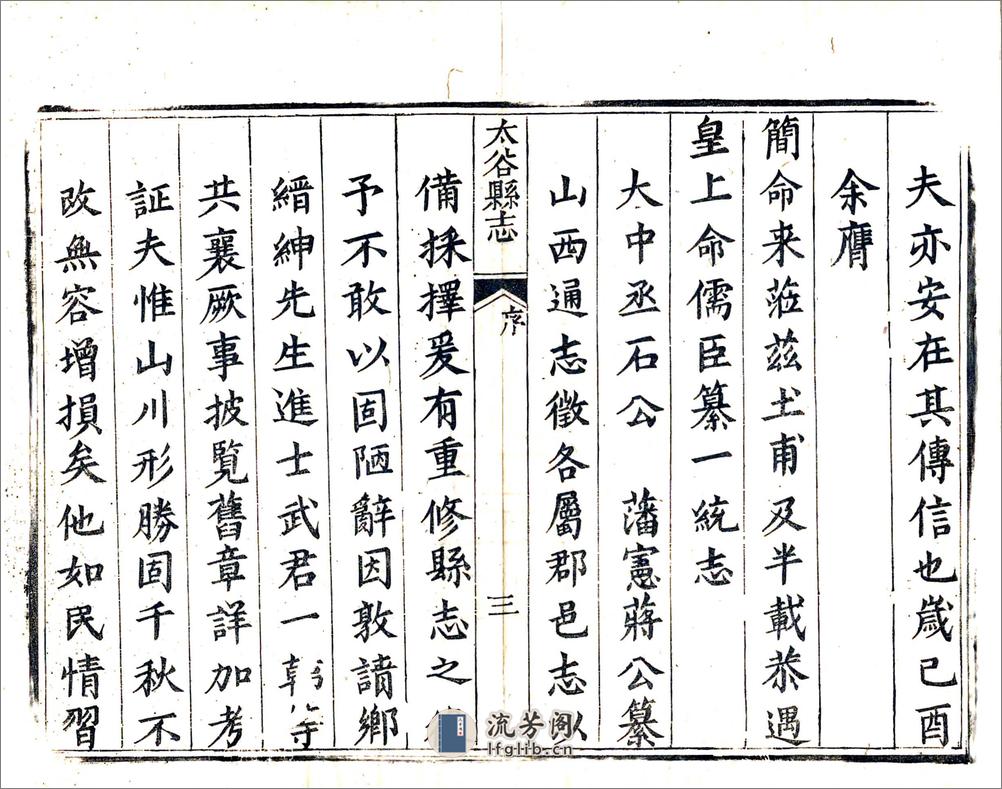 夫亦安在其傳信也歲己酉
余膺
簡命来蒞兹土甫及半載恭遇
皇上命儒臣纂一統志
大中丞石公　藩憲蔣公纂
山西通志徵各屬郡邑志以
太谷縣志
序
三
備採擇爰有重修縣志之
予不敢以固陋辭因敦請鄉
縉紳先生進士武君一韓等
共襄厥事披覽舊章詳加考
証夫惟山川形勝固千秋不
改無容增損矣他如民情習
流芳阁
lfglib.cn